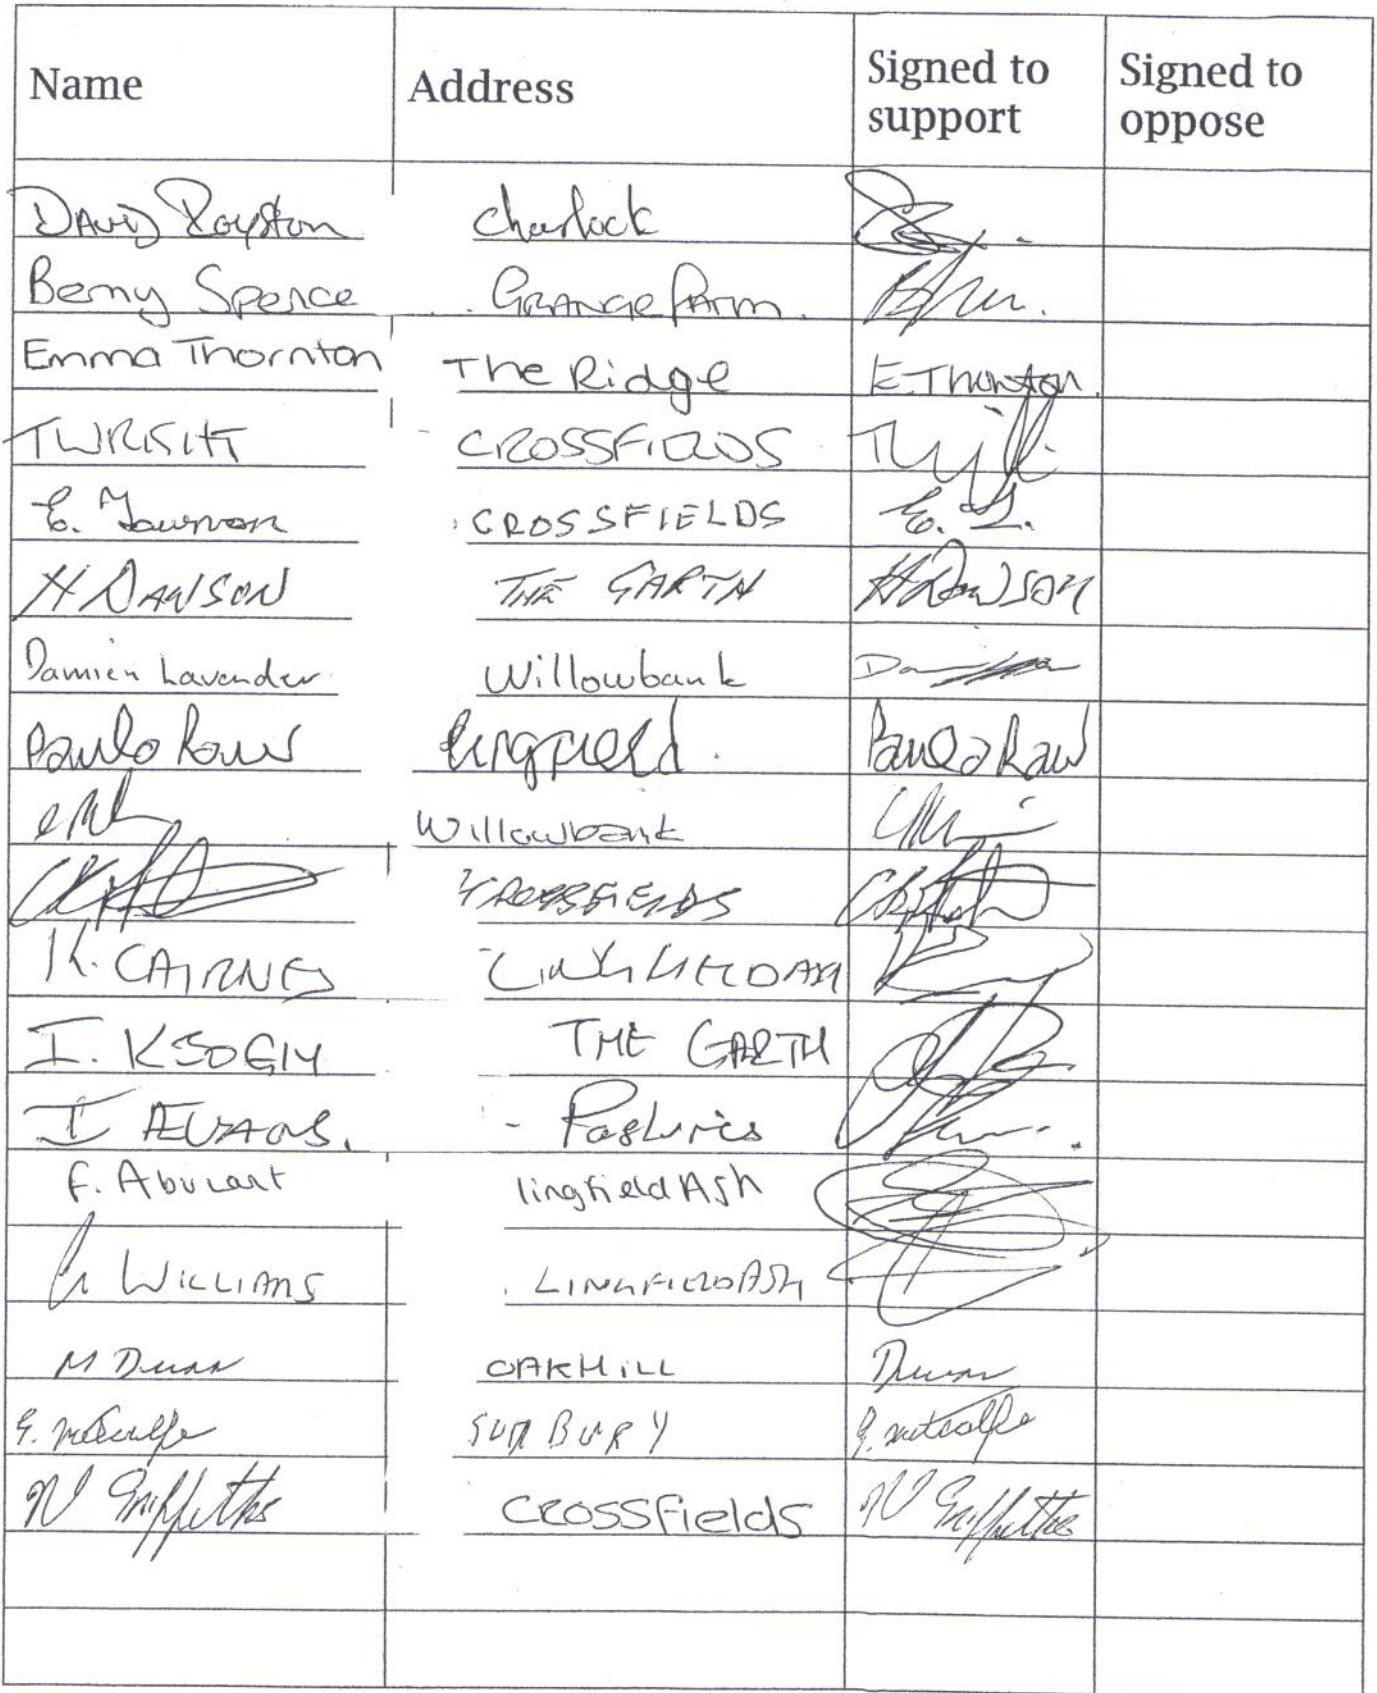 Name Address Signed to support Signed to oppose
David Royston Charlock
Berny Spence Grange Farm.
Emma Thornton The Ridge E. Thornton
T WRIGHT CROSSFIELDS
E. CROSSFIELDS E.
H DAWSON THE GARTH H Dawson
Damien Lavender Willowbank
Paula Raw Lingfield. Paula Raw
Willowbank
CROSSFIELDS
K. CAIRNES LINGFIELD ASH
I. THE GARTH
I A EVANS. Pastures
F. lingfield Ash
WILLIAMS LINGFIELD ASH
M Dunn OAKHILL Dunn
G. Metcalfe SUNBURY G. Metcalfe
N Griffiths CROSSFields N Griffiths